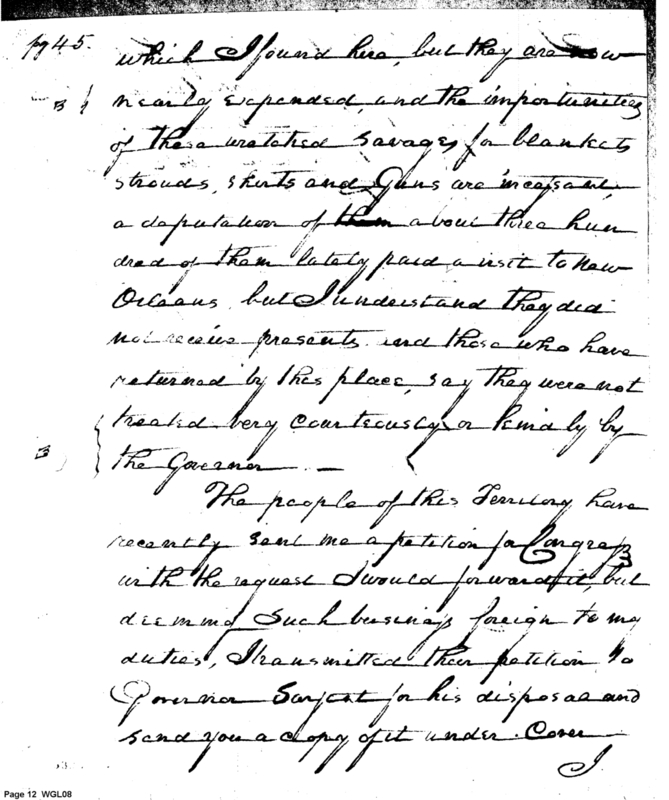 pg 45.
which I found here, but they are now
B nearly expended, and the importunities
of these wretched savages for blankets
strouds, shirts and Guns are incessant
a deputation of them about three hun
dred of them lately paid a visit to New
Orleans, but I understand they did
not receive presents and those who have
returned by this place, say they were not
treated very courteously or kindly by
B the Governor. —
The people of this Territory have
recently sent me a petition for Congress
with the request I would forward it, but
deeming such business foreign to my
duties, I transmitted their petition to
Governor Sargent for his disposal and
send you a copy of it under Cover
I
Page 12 WGL08